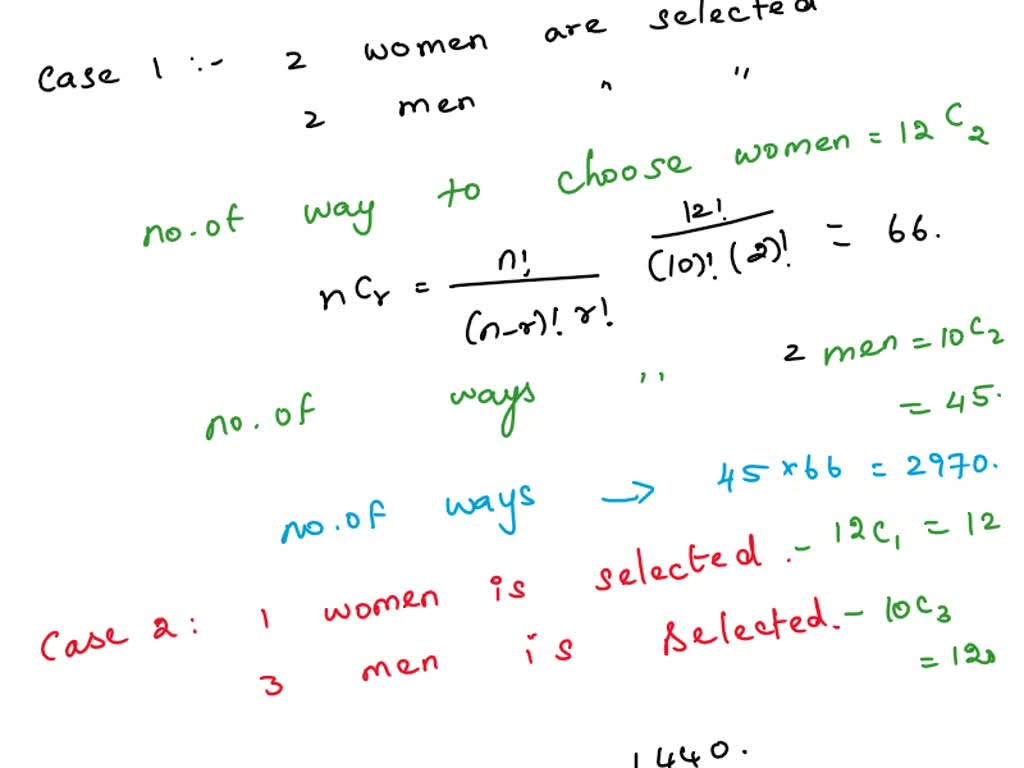 Case 1 :- 2 women are selected
2 men " "
no.of way to choose women = 12C2
nCr = n! / (n-r)! r! 12! / (10)! (2)! = 66.
no.of ways " 2 men = 10C2
= 45.
no.of ways → 45 × 66 = 2970.
Case 2: 1 women is selected .- 12C1 = 12
3 men is selected.- 10C3
= 120
1440.